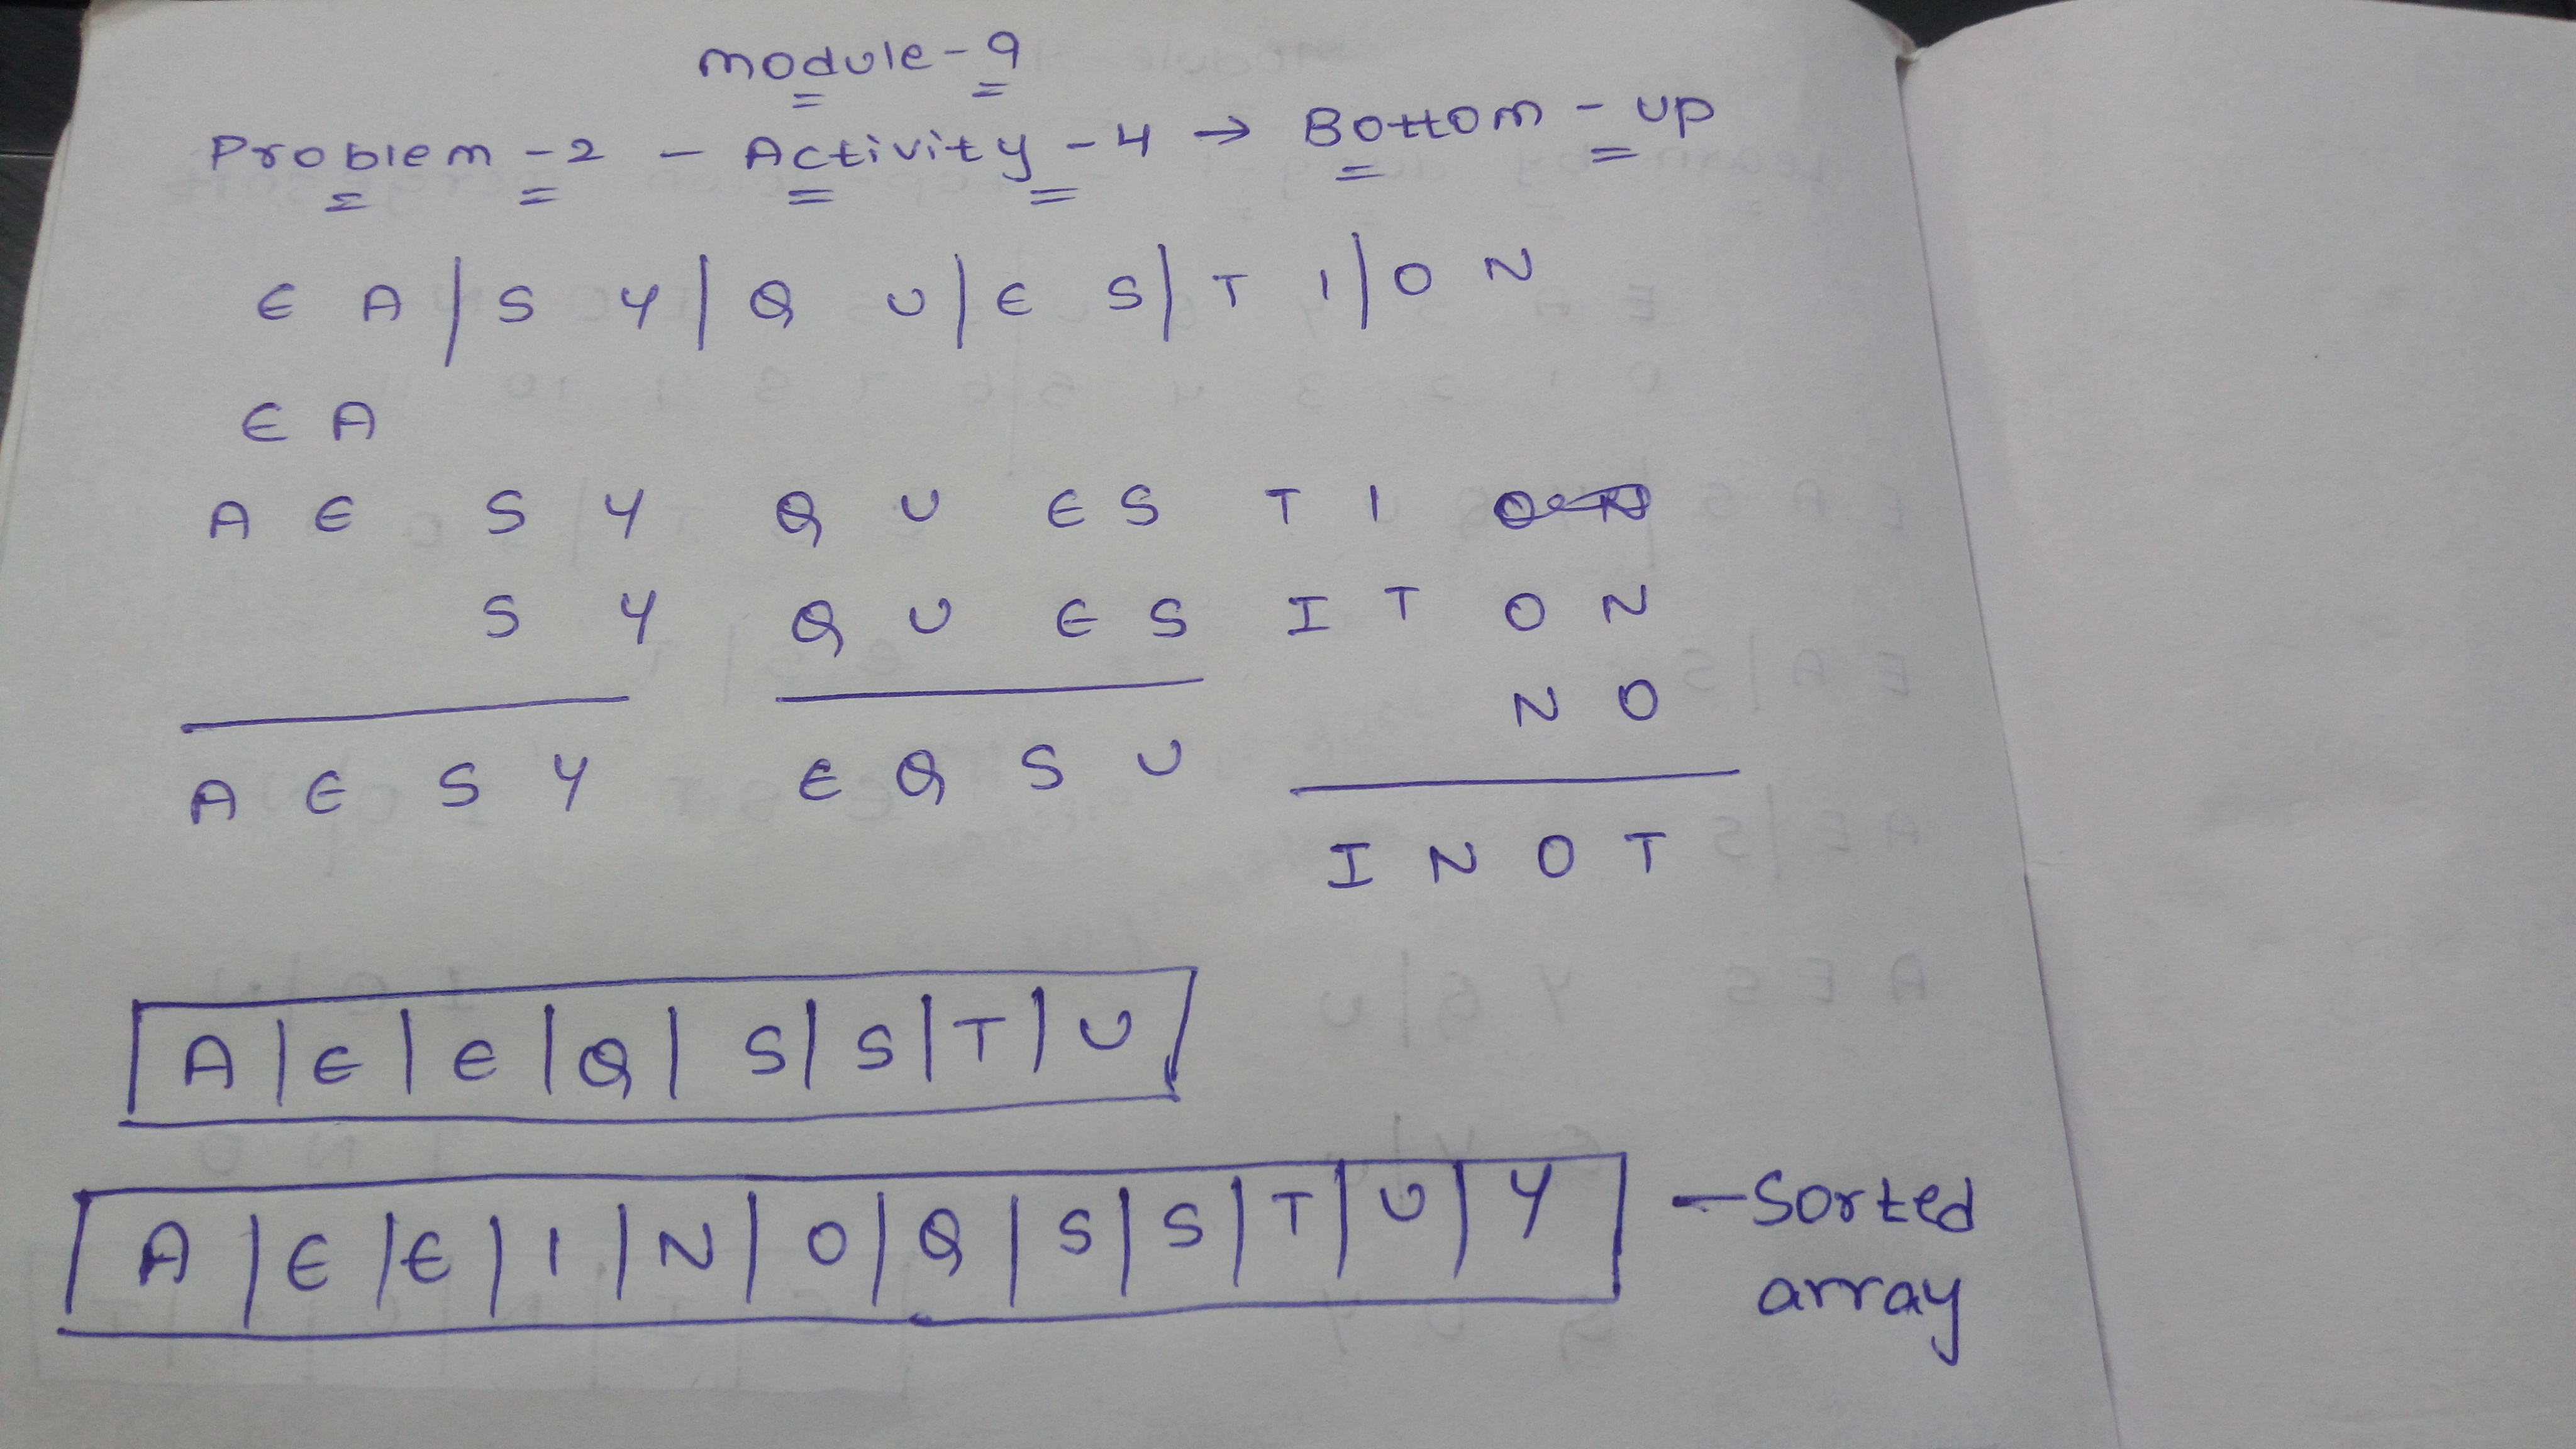 module-9
Problem-2 - Activity-4 → Bottom-up
E A | S Y | Q U | E S | T I | O N
E A
A E S Y Q U E S T I
S Y Q U E S I T O N
N O
A E S Y E Q S U
I N O T
A | E | E | Q | S | S | T | U
A | E | E | I | N | O | Q | S | S | T | U | Y - Sorted
array